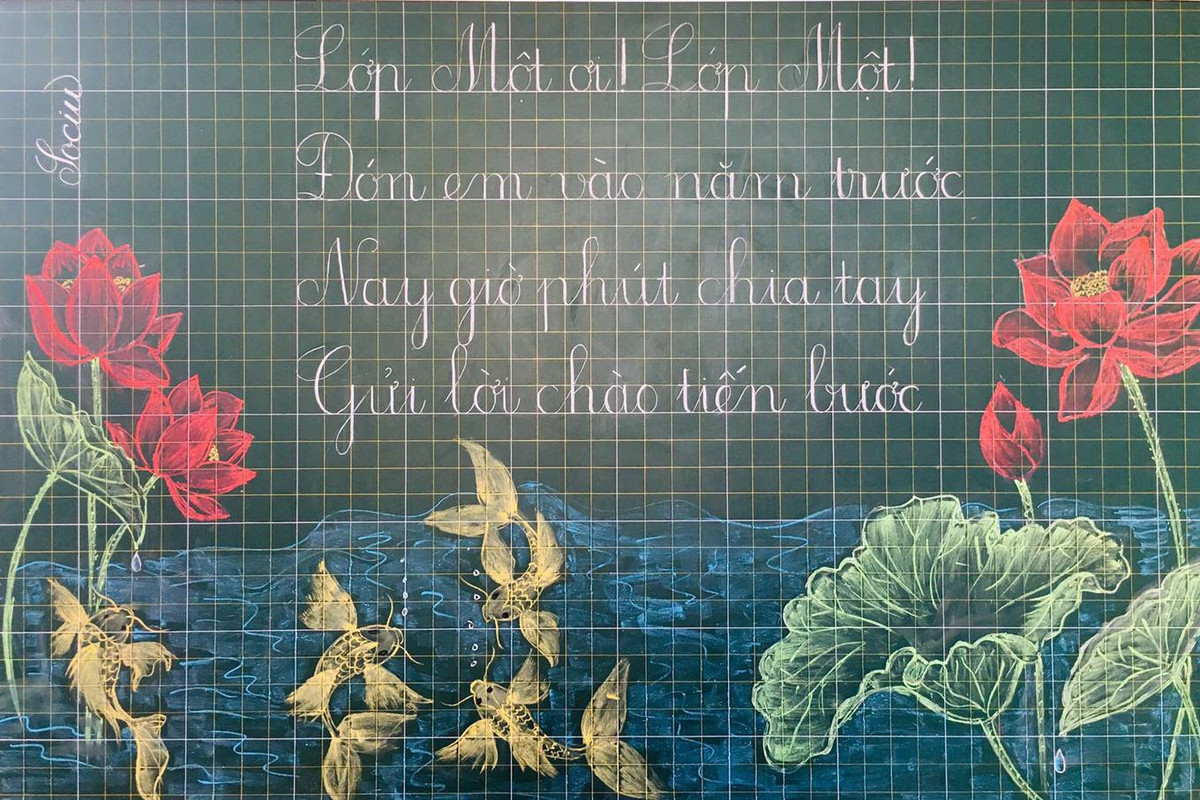 Lớp Một ơi! Lớp Một!
Đón em vào năm trước
Nay giờ phút chia tay
Gửi lời chào tiến bước